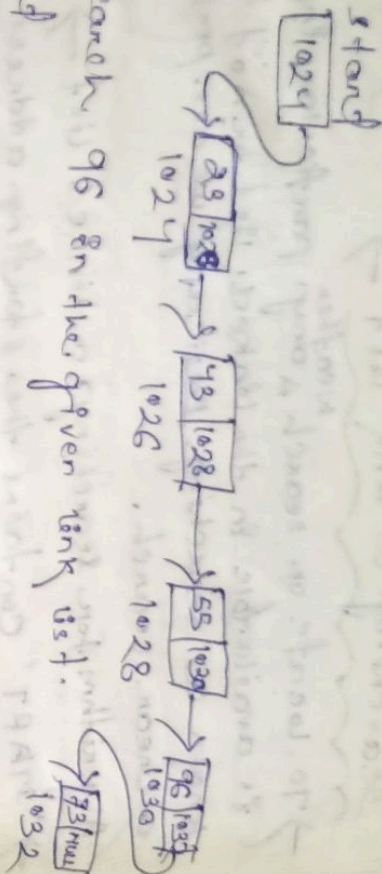 start
1024
29 1026
1024
43 1028
1026
55 1030
1028
96 1032
1030
73 NULL
1032
96 in the given link list.